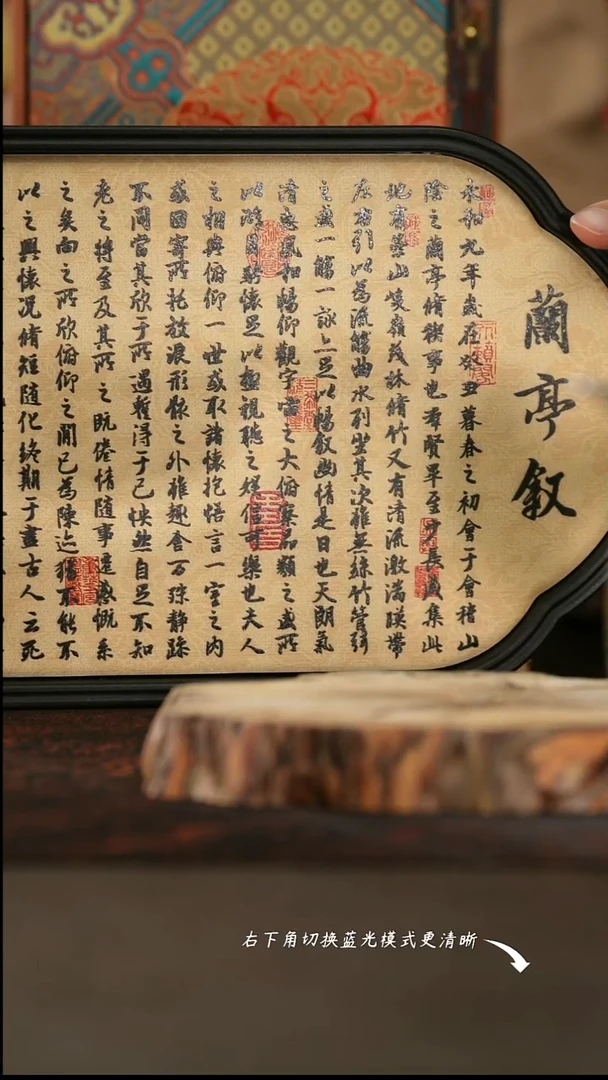 蘭亭叙
永和九年歲在癸丑暮春之初會于會稽山
陰之蘭亭脩稧事也群賢畢至少長咸集此
地有崇山峻嶺茂林脩竹又有清流激湍暎帶
左右引以為流觴曲水列坐其次雖無絲竹管弦
之盛一觴一詠亦足以暢叙幽情是日也天朗氣
清惠風和暢仰觀宇宙之大俯察品類之盛所
以遊目騁懷足以極視聽之娛信可樂也夫人
之相與俯仰一世或取諸懷抱悟言一室之内
或因寄所託放浪形骸之外雖趣舍万殊静躁
不同當其欣于所遇暫得于己怏然自足不知
老之將至及其所之既惓情隨事遷感慨系
之矣向之所欣俯仰之間已為陳迹猶不能不
以之興懷况脩短隨化終期于盡古人云死
右下角切换蓝光模式更清晰